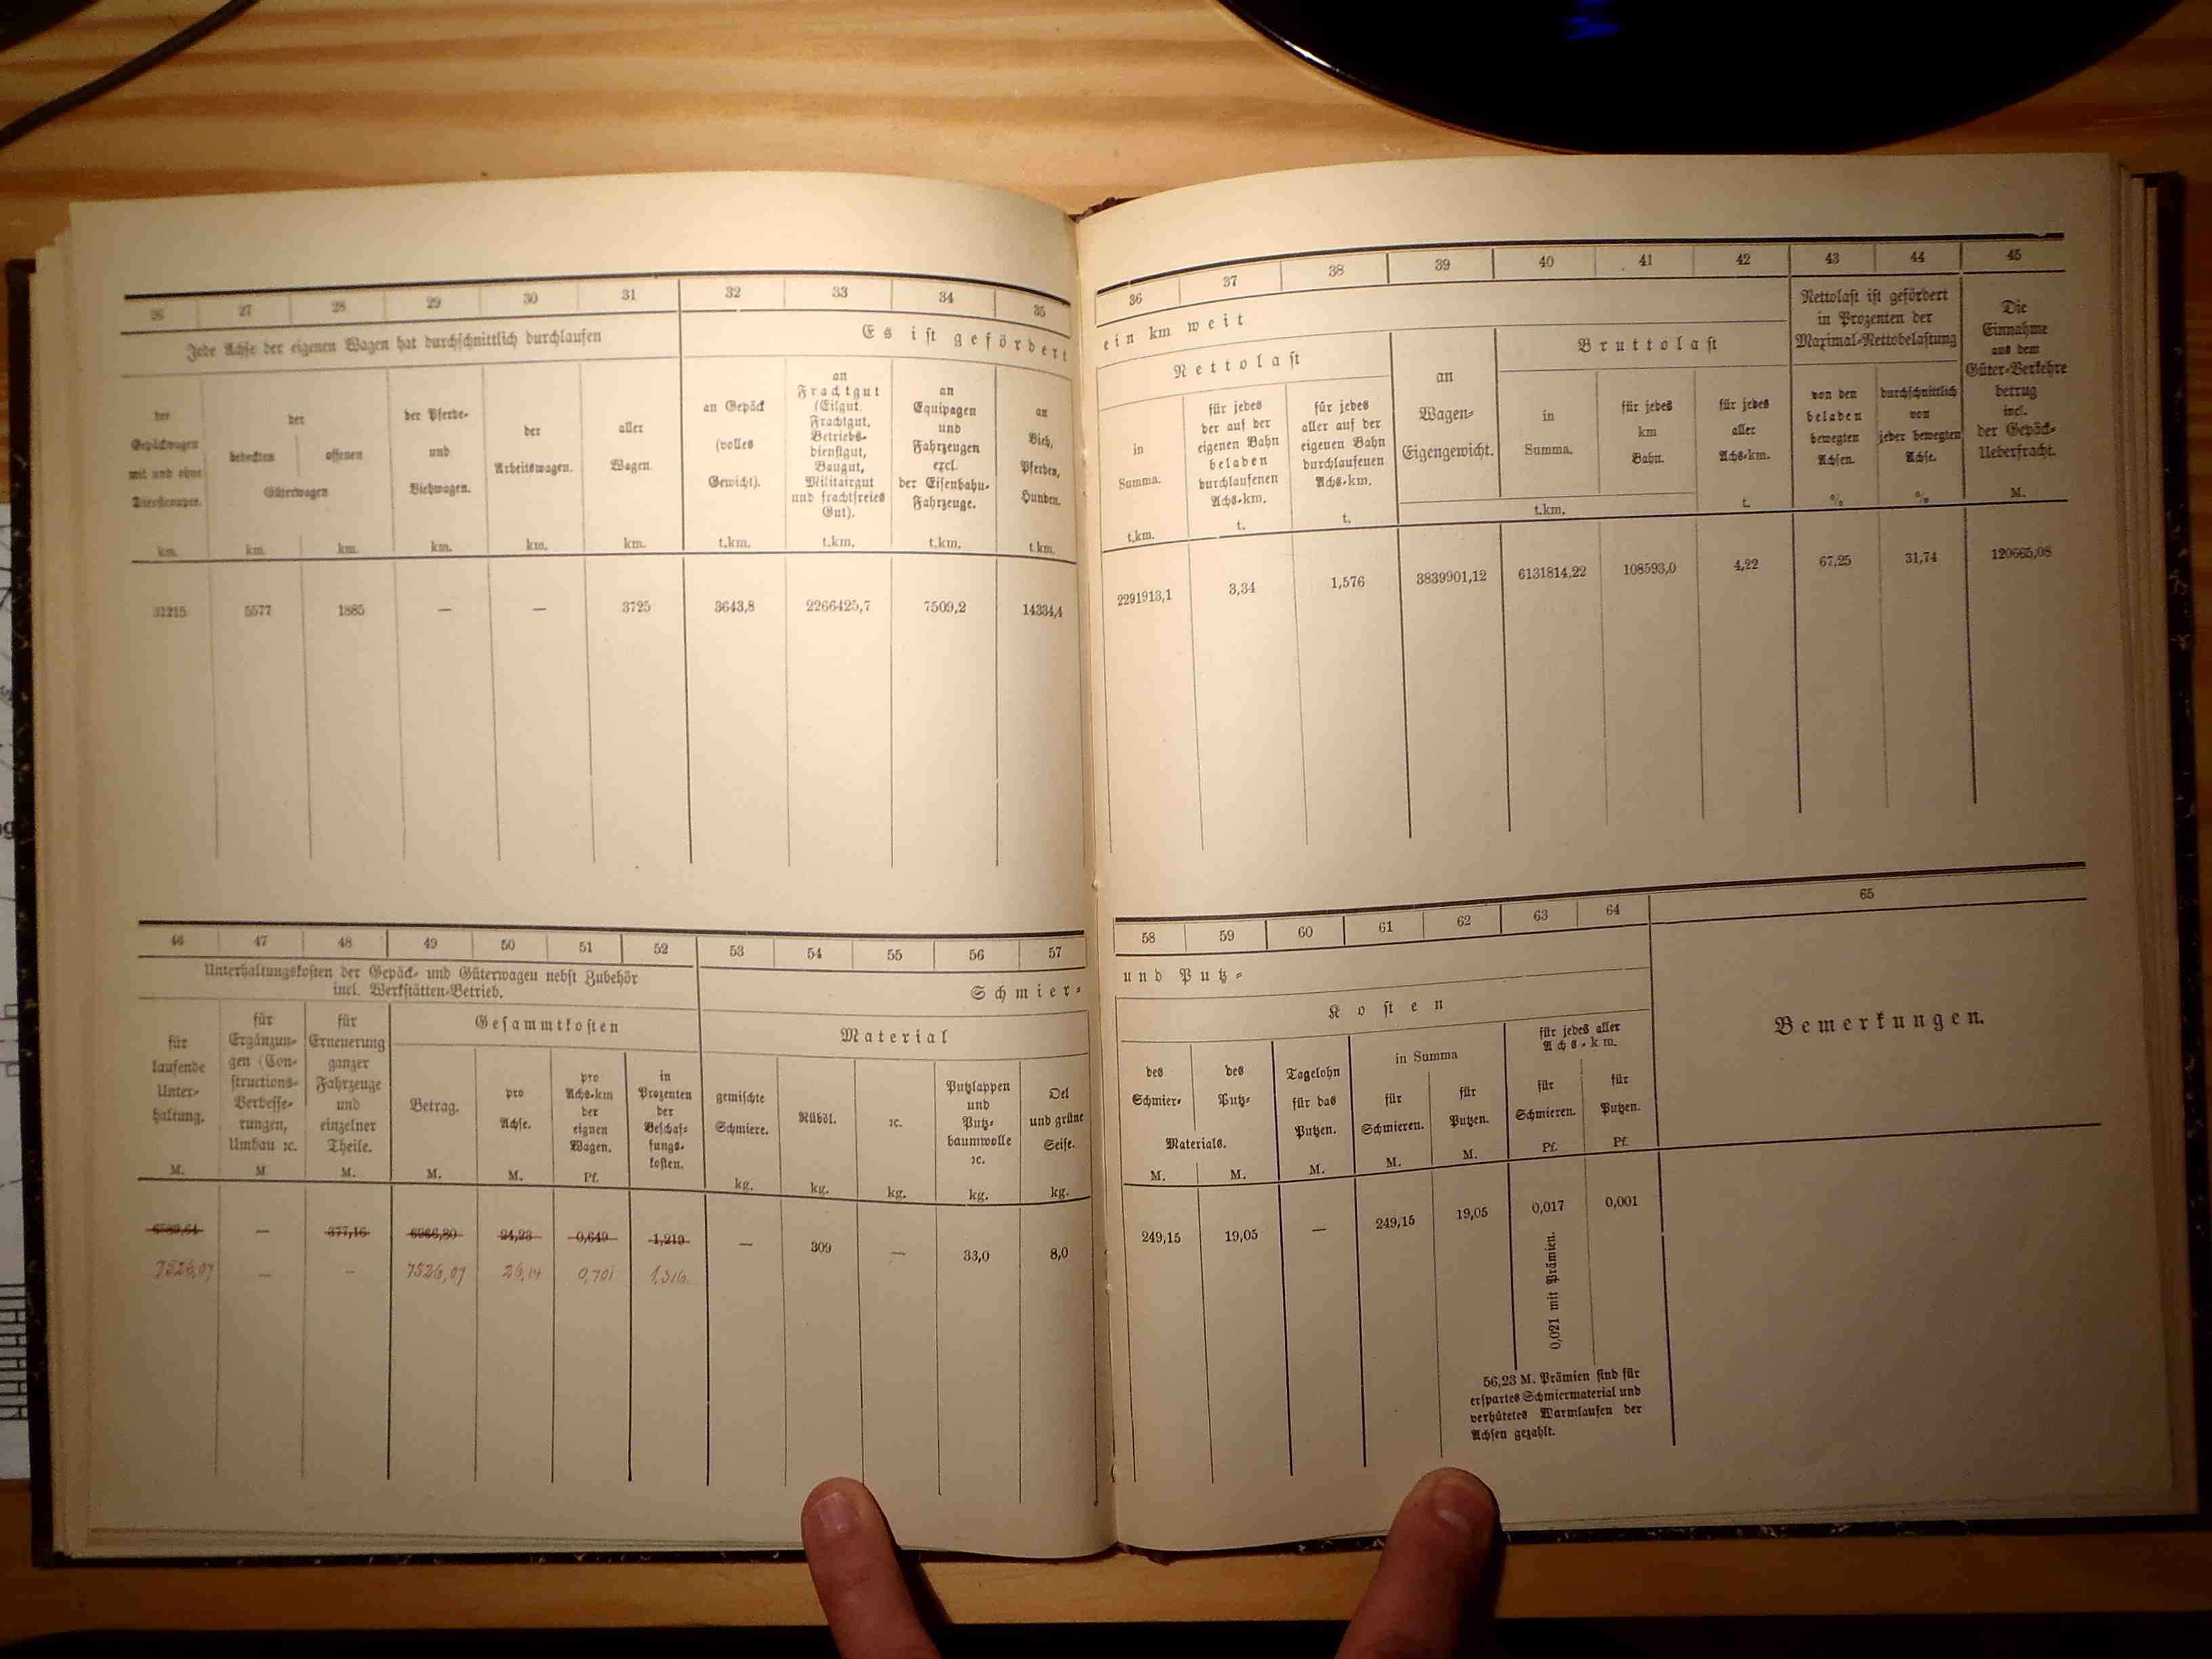 26 27 28 29 30 31 32 33 34 35
Jede Achse der eigenen Wagen hat durchschnittlich durchlaufen
Es ist gefördert
der
Gepäckwagen
mit und ohne
Dienstcoupee.
km.
der
bedeckten offenen
Güterwagen
km. km.
der Pferde-
und
Viehwagen.
km.
der
Arbeitswagen.
km.
aller
Wagen.
km.
an Gepäck
(volles
Gewicht).
t.km.
an
Frachtgut
(Eilgut,
Frachtgut,
Betriebs-
dienstgut,
Baugut,
Militairgut
und frachtfreies
Gut).
t.km.
an
Equipagen
und
Fahrzeugen
excl.
der Eisenbahn-
Fahrzeuge.
t.km.
an
Vieh,
Pferden,
Hunden.
t.km.
31215 5577 1885 — — 3725 3643,8 2266425,7 7509,2 14334,4
36 37 38 39 40 41 42 43 44 45
ein km weit
Nettolast
in
Summa.
t.km.
für jedes
der auf der
eigenen Bahn
beladen
durchlaufenen
Achs-km.
t.
für jedes
aller auf der
eigenen Bahn
durchlaufenen
Achs-km.
t.
an
Wagen-
Eigengewicht.
Bruttolast
in
Summa.
für jedes
km
Bahn.
t.km.
für jedes
aller
Achs-km.
t.
Nettolast ist gefördert
in Prozenten der
Maximal-Nettobelastung
von den
beladen
bewegten
Achsen.
%
durchschnittlich
von
jeder bewegten
Achse.
%
Die
Einnahme
aus dem
Güter-Verkehre
betrug
incl.
der Gepäck-
Ueberfracht.
M.
2291913,1 3,34 1,576 3839901,12 6131814,22 108593,0 4,22 67,25 31,74 120665,08
46 47 48 49 50 51 52 53 54 55 56 57
Unterhaltungskosten der Gepäck- und Güterwagen nebst Zubehör
incl. Werkstätten-Betrieb.
Schmier-
für
laufende
Unter-
haltung.
M.
für
Ergänzun-
gen (Con-
structions-
Verbesse-
rungen,
Umbau ꝛc.
M
für
Erneuerung
ganzer
Fahrzeuge
und
einzelner
Theile.
M.
Gesammtkosten
Betrag.
M.
pro
Achse.
M.
pro
Achs-km
der
eignen
Wagen.
Pf.
in
Prozenten
der
Beschaf-
fungs-
kosten.
Material
gemischte
Schmiere.
kg.
Rüböl.
kg.
ꝛc.
kg.
Putzlappen
und
Putz-
baumwolle
ꝛc.
kg.
Oel
und grüne
Seife.
kg.
6589,64 — 377,16 6966,80 24,23 0,649 1,219 — 309 — 33,0 8,0
7526,07 — — 7526,07 26,14 0,701 1,316
58 59 60 61 62 63 64 65
und Putz-
Kosten
des
Schmier-
des
Putz-
Materials.
M. M.
Tagelohn
für das
Putzen.
M.
in Summa
für
Schmieren.
M.
für
Putzen.
M.
für jedes aller
Achs-km.
für
Schmieren.
Pf.
für
Putzen.
Pf.
Bemerkungen.
249,15 19,05 — 249,15 19,05 0,017 0,001
0,021 mit Prämien.
56,23 M. Prämien sind für
erspartes Schmiermaterial und
verhütetes Warmlaufen der
Achsen gezahlt.